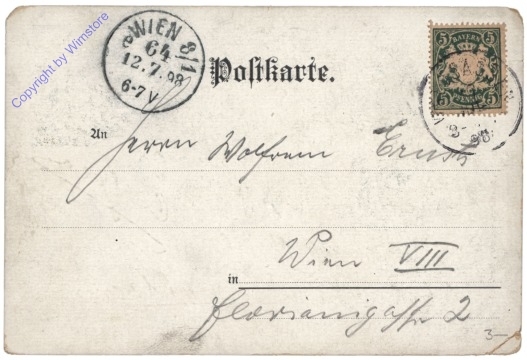 Copyright by Wimstore
WIEN 8/1
64
12.7.98
6-7V
Postkarte.
5 BAYERN 5
5 PFENNIG 5
An
Herrn Wolfram Ernst
Wien VIII
in
Florianigasse 2
3-